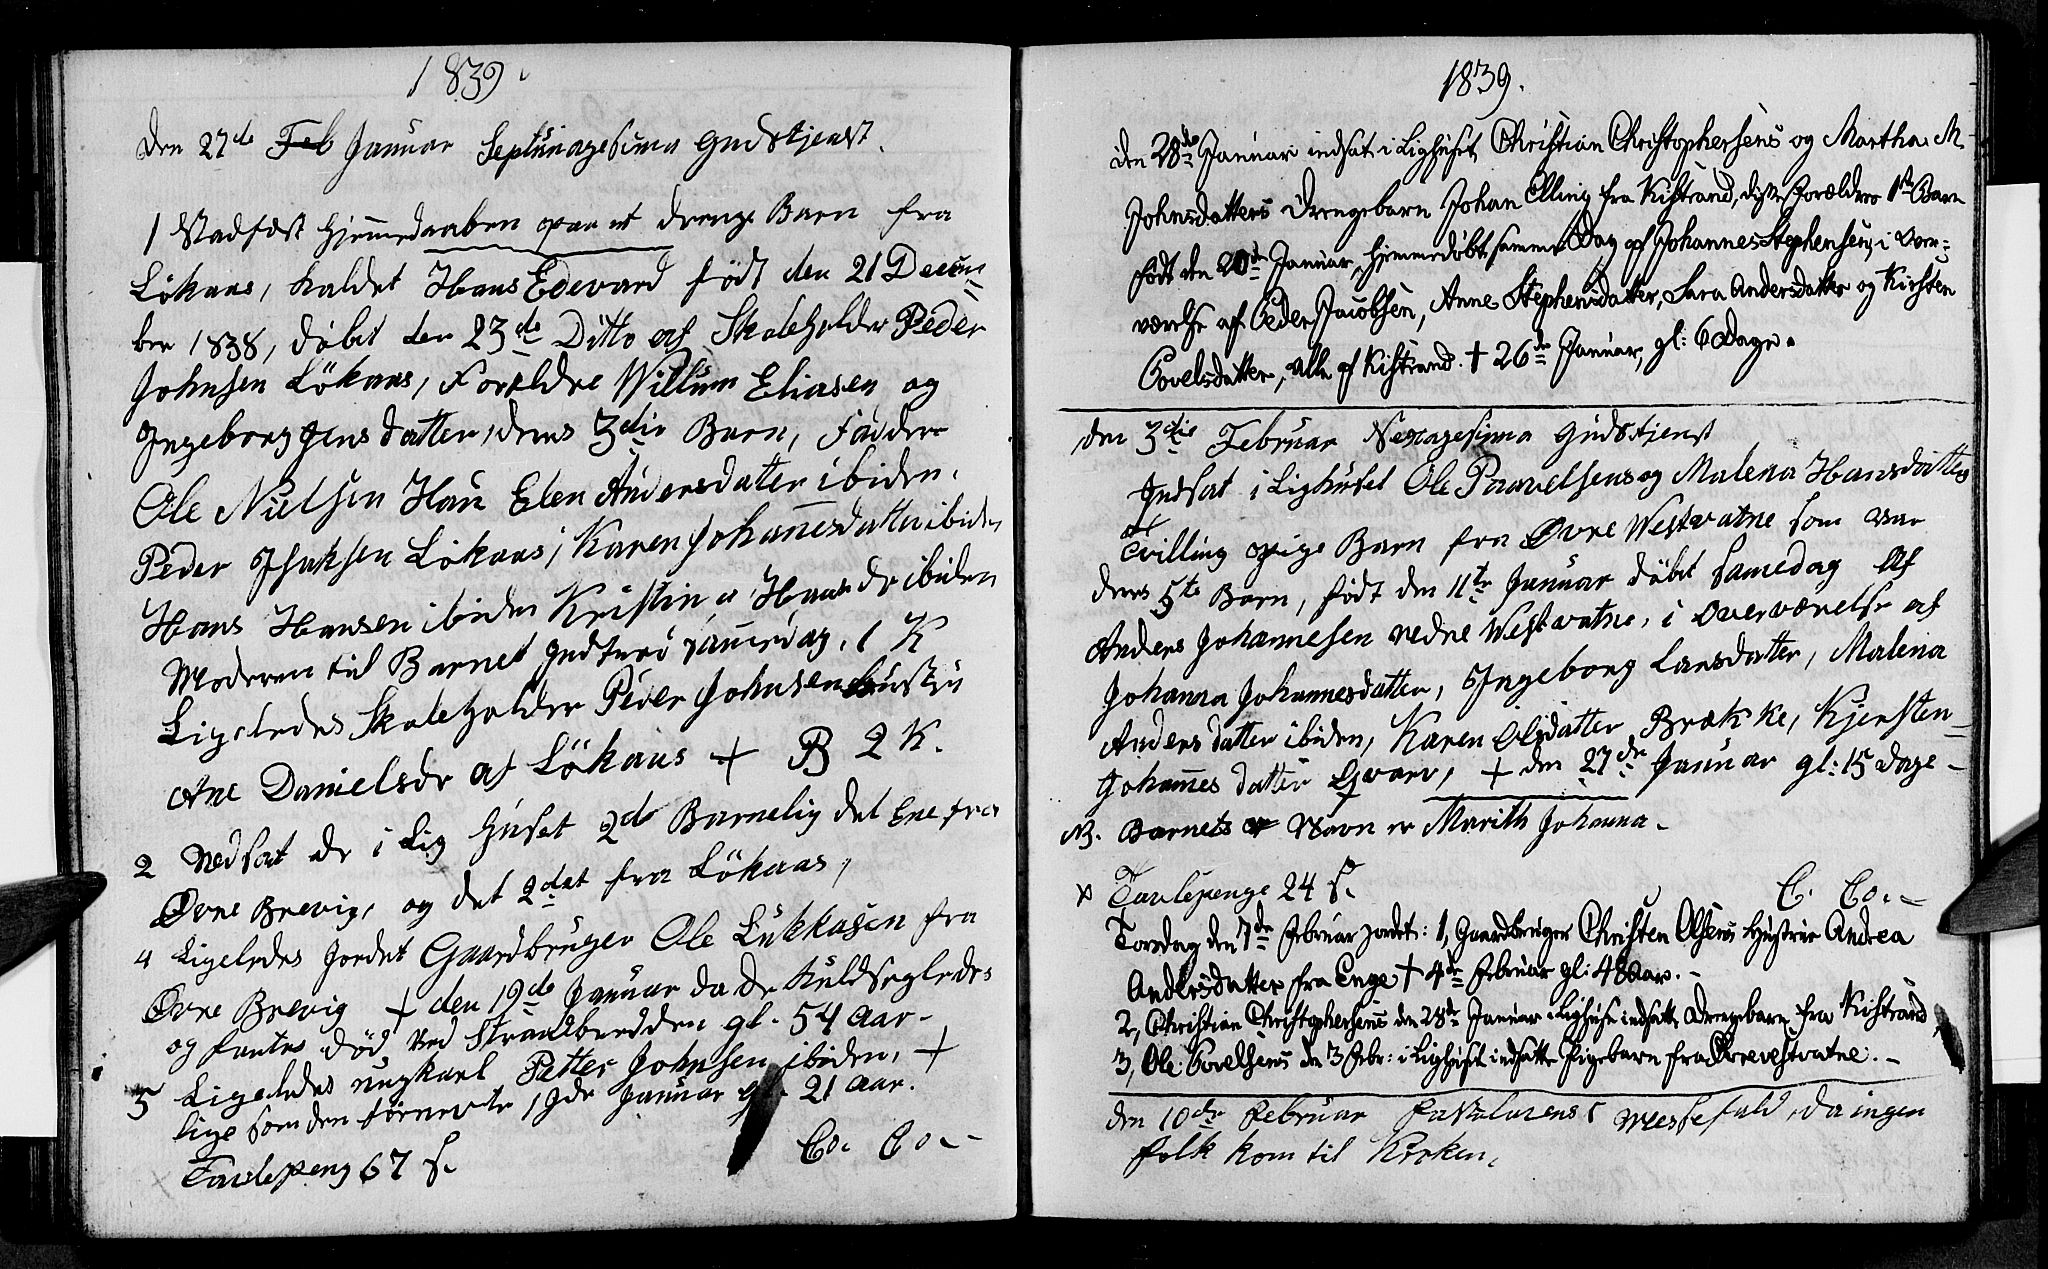 1839.
den 27de Feb Januar Septuagesima Gudstjenst.
1 Stadfæst Hjemmedaaben paa et drenge Barn fra
Lökaas, kaldet Hans Edevard født den 21 Decem=
ber 1838, døbet den 23de Ditto af Skoleholder Peder
Johnsen Lökaas, Forældre Willum Eliasen og
Ingeborg Jensdatter, deres 3die Barn, Faddere
Ole Nielsen Elen Andersdatter ibiden.
Peder Isaksen Lökaas, Karen Johannesdatter ibiden
Hans Hansen ibiden Kristin Hansdr ibiden
Moderen til Barnet Indtroe samedag. 1 K
Ligeledes Skoleholder Peder Johnsens Hustru
Ane Danielsdr af Lökaas + B 2 K.
2 Nedsat de i Lig Huset 2de Barnelig det Ene fra
Øvre Brevig, og det 2det fra Lökaas,
4 Ligeledes Jordet Gaardbruger Ole Lukkasen fra
Øvre Brevig + den 19de Januar da de Kuldseglede
og fantes død ved Strandbredden gl. 54 Aar -
5 Ligeledes ungkarl Petter Johnsen ibiden, +
lige som den førnevte, 19de Januar gl. 21 Aar.
Tavlepeng 67 s. Co. Co. -
1839.
den 28de Januar indsat i Lighuset Christian Christophersens og Martha M.
Johnsdatters Drengebarn Johan Elling fra Kistrand, disse Forældres 1ste Barn
født den 20de Januar, hjemmedøbt samme Dag af Johannes Stephensen, i Over=
værelse af Peder Jacobsen, Anne Stephensdatter, Sara Andersdatter og Kirsten
Povelsdatter, alle af Kistrand. + 26de Januar, gl: 6 Dage.
den 3die Februar Sexagesima Gudstjenst
Indsat i Lighuset Ole Paavelsens og Malena Hansdatters
Tvilling pige Barn fra Øvre Westvatne som var
deres 5te Barn, født den 11te Januar døbt samedag Af
Anders Johannesen nedre Westvatne, i overværelse af
Johanna Johannesdatter, Ingeborg Larsdatter, Malena
Andersdatter ibiden, Karen Olsdatter Brække, Kjersten=
Johannes datter Qvarv, + den 27de Januar gl: 15 Dage -
NB. Barnets Navn er Marith Johanna.
x Tavlepenge 24 s. C. Co. -
Torsdag den 7de Februar jordet: 1, Gaardbruger Christen Olsens Hustrue Andrea
Andersdatter fra Enge + 4de Februar gl: 48 Aar. -
2, Christian Christophersens den 28de Januar i Lighuset indsatte Drengebarn fra Kistrand
3, Ole Povelsens den 3 Febr: i Lighuset indsatte Pigebarn fra Øvrevestvatne. -
den 10de Februar Fastelavens Messefald, da ingen
folk kom til Kirken.